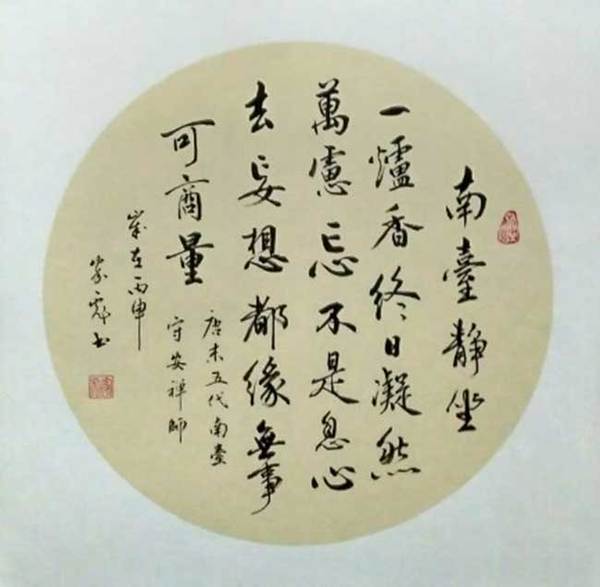 南臺靜坐
一爐香終日凝然
萬慮忘不是息心
去妄想都緣無事
可商量
唐末五代南臺
守安禪師
歲在丙申
书